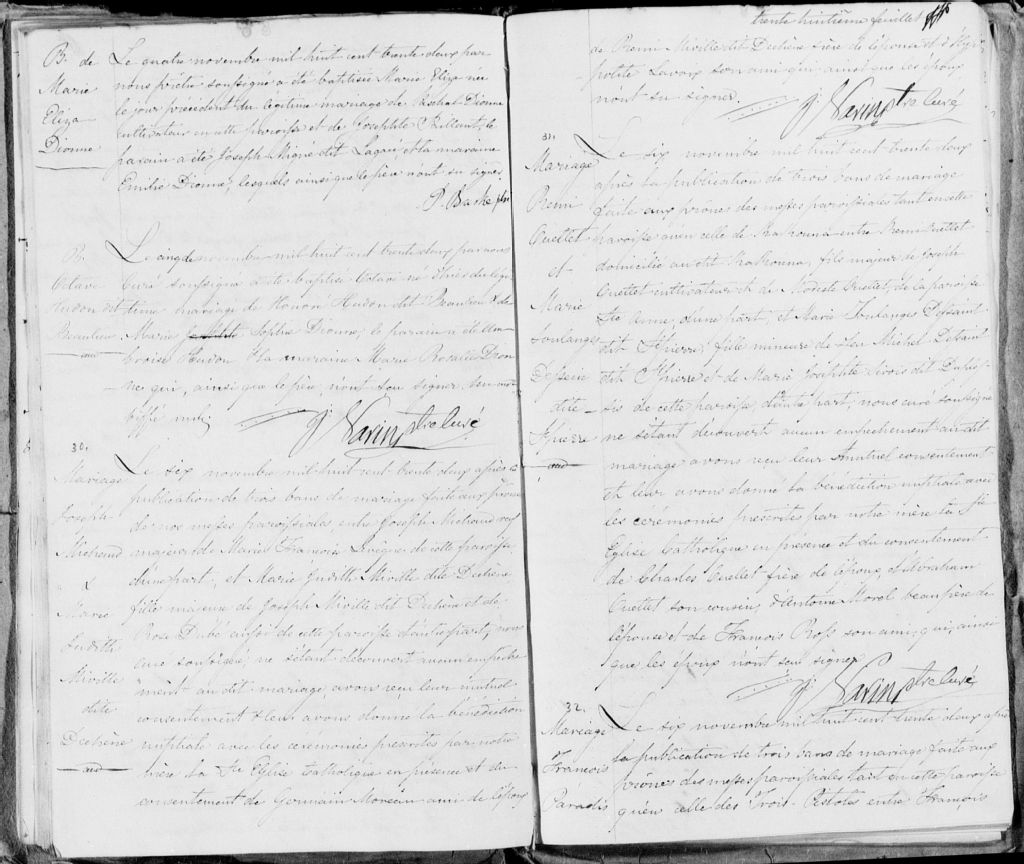 B. de
Marie
Eliza
Dionne
Le quatre novembre mil huit cent trente deux par
nous prêtre soussigné a été batisée Marie Eliza née
le jour précédent du légitime mariage de Paschal Dionne
cultivateur en cette paroisse et de Josephte Billant, le
parain a été Joseph Migné dit Lagacé et la maraine
Emilie Dionne, lesquels ainsi que le père n'ont su signer
P. Baske ptre
B.
Octave
Hudon dit
Beaulieu
Le cinq de novembre mil huit cent trente deux par nous
Curé soussigné a été baptisé Octave né d'hier du légi-
time mariage de Honoré Hudon dit Beaulieu & de
Marie Sophie Dionne, le parain a été Am-
broise Hudon & la maraine Marie Rosalie Dion-
ne qui, ainsi que le père, n'ont su signer, un mot
biffé nul
J. Varin Ptre Curé
30.
Mariage
Joseph
Michaud
&
Marie
Judith
Miville
dite
Dechène
Le six novembre mil huit cent trente deux après la
publication de trois bans de mariage faite aux prônes
de nos messes paroissiales entre Joseph Michaud veuf
majeur de Marie Françoise Levêque de cette paroisse
d'une part, et Marie Judith Miville dite Dechène
fille majeure de Joseph Miville dit Dechène et de
Rose Dubé aussi de cette paroisse d'autre part, nous
curé soussigné, ne s'étant découvert aucun empêche
ment au dit mariage, avons reçu leur mutuel
consentement & leur avons donné la bénédiction
nuptiale avec les cérémonies prescrites par notre
mère la Ste Eglise Catholique en présence et du
consentement de Germain Moreau ami de l'époux
trente huitième feuillet
de Remi Miville dit Dechène frère de l'épouse et d'Hyp-
polite Lavoix son ami qui, ainsi que les époux
n'ont su signer.
J. Varin Ptre Curé
31.
Mariage
Remi
Ouellet
et
Marie
Soulanges
Dessein
dite
St pierre
Le six novembre mil huit cent trente deux
après la publication de trois bans de mariage
faite aux prônes des messes paroissiales tant en cette
paroisse qu'en celle de Kakouna entre Remi Ouellet
domicilié au dit Kakouna, fils majeur de Joseph
Ouellet cultivateur et de Modeste Ouellet, de la paroisse
Ste Anne, d'une part, et Marie Soulanges Dessaint
dit St pierre, fille mineure de feu Michel Dessaint
dit St pierre et de Marie Josephte Sirois dit Duples-
sis de cette paroisse, d'autre part, nous curé soussigné
ne s'étant découvert aucun empêchement au dit
mariage avons reçu leur mutuel consentement
et leur avons donné la bénédiction nuptiale avec
les cérémonies prescrites par notre mère la Ste
Eglise Catholique en présence et du consentement
de Charles Ouellet frère de l'époux, d'Abraham
Ouellet son cousin, d'Antoine Morel beau frère de
l'épouse et de François Ross son ami, qui, ainsi
que les époux n'ont su signer
J. Varin Ptre Curé
32.
Mariage
François
Paradis
Le six novembre mil huit cent trente deux après
la publication de trois bans de mariage faite aux
prônes des messes paroissiales tant en cette paroisse
qu'en celle des Trois-Pistoles entre François